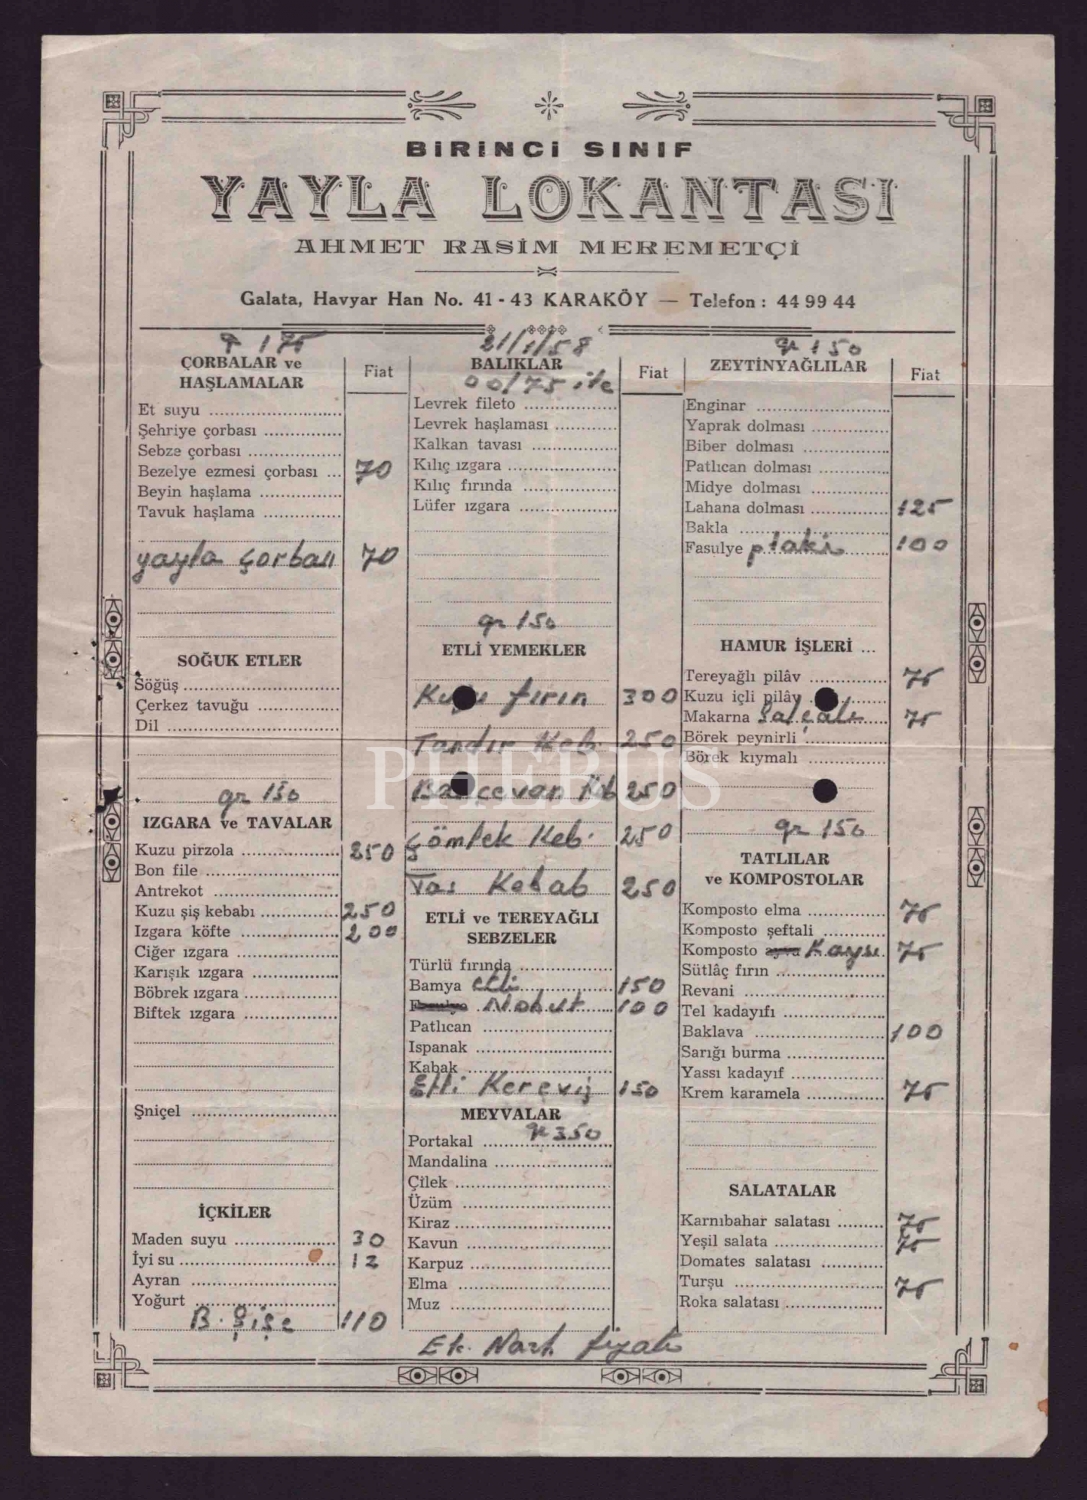 BİRİNCİ SINIF
YAYLA LOKANTASI
AHMET RASİM MEREMETÇİ
Galata, Havyar Han No. 41 - 43 KARAKÖY — Telefon : 44 99 44
175
ÇORBALAR ve HAŞLAMALAR Fiat
Et suyu
Şehriye çorbası
Sebze çorbası
Bezelye ezmesi çorbası 70
Beyin haşlama
Tavuk haşlama
yayla çorbası 70
SOĞUK ETLER
Söğüş
Çerkez tavuğu
Dil
gr 150
IZGARA ve TAVALAR
Kuzu pirzola 250
Bon file
Antrekot
Kuzu şiş kebabı 250
Izgara köfte 200
Ciğer ızgara
Karışık ızgara
Böbrek ızgara
Biftek ızgara
Şniçel
İÇKİLER
Maden suyu 30
İyi su 12
Ayran
Yoğurt
B. Şişe 110
21/1/58
BALIKLAR Fiat
00/75
Levrek fileto
Levrek haşlaması
Kalkan tavası
Kılıç ızgara
Kılıç fırında
Lüfer ızgara
gr 150
ETLİ YEMEKLER
Kuzu fırın 300
Tandır Keb. 250
Bahçevan Kb 250
Çömlek Keb. 250
Tas Kebab 250
ETLİ ve TEREYAĞLI
SEBZELER
Türlü fırında
Bamya etli 150
Nohut 100
Patlıcan
Ispanak
Kabak
Etli Kereviz 150
MEYVALAR
gr 350
Portakal
Mandalina
Çilek
Üzüm
Kiraz
Kavun
Karpuz
Elma
Muz
gr 150
ZEYTİNYAĞLILAR Fiat
Enginar
Yaprak dolması
Biber dolması
Patlıcan dolması
Midye dolması
Lahana dolması 125
Bakla
Fasulye plaki 100
HAMUR İŞLERİ ...
Tereyağlı pilâv 75
Kuzu içli pilâv
Makarna Salçalı 75
Börek peynirli
Börek kıymalı
gr 150
TATLILAR
ve KOMPOSTOLAR
Komposto elma 75
Komposto şeftali
Komposto ayva Kaysı 75
Sütlâç fırın
Revani
Tel kadayıfı
Baklava 100
Sarığı burma
Yassı kadayıf
Krem karamela 75
SALATALAR
Karnıbahar salatası 75
Yeşil salata 75
Domates salatası
Turşu 75
Roka salatası
Et. Narh fiyatı
PHEBUS